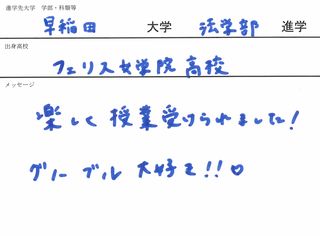 進学先大学 学部・科類等
早稲田 大学 法学部 進学
出身高校
フェリス女学院高校
メッセージ
楽しく授業受けられました!
グノーブル大好き!!♡